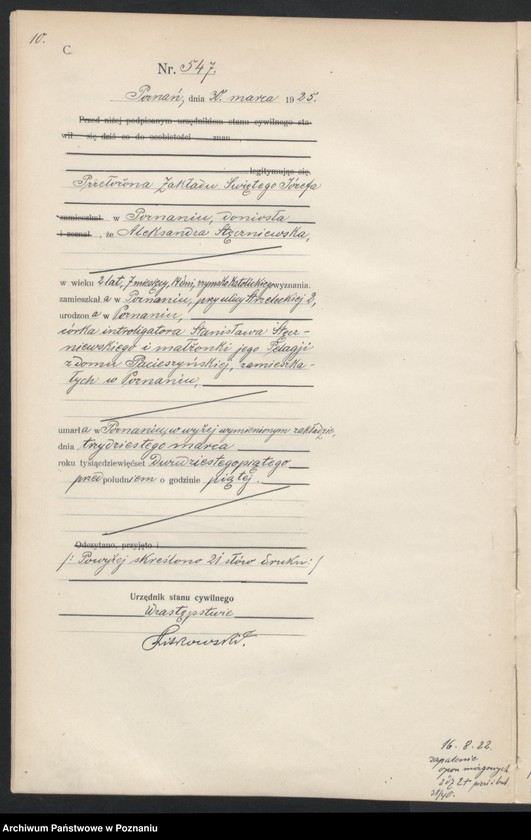 10.
C.
Nr. 547.
Poznań, dnia 30. marca 1925.
Przed niżej podpisanym urzędnikiem stanu cywilnego sta-
wił się dziś co do osobistości znan ,
legitymując się,
Przełożona Zakładu Świętego Józefa
zamieszkał w Poznaniu, doniosła
i zeznał , że Aleksandra
w wieku 2 lat, 7 miesięcy, 14 dni, rzymsko katolickiego wyznania.
zamieszkała w Poznaniu, przy ulicy Strzeleckiej 2,
urodzona w Poznaniu,
córka introligatora Stanisława
niewskiego i małżonki jego Pelagji
z domu Pacieszyńskiej, zamieszka-
łych w Poznaniu,
umarła w Poznaniu, w wyżej wymienionym zakładzie,
dnia trzydziestego marca
roku tysiącdziewięćset dwudziestegopiątego
przedpołudniem o godzinie piątej.
Odczytano, przyjęto i
/: Powyżej skreślono 21 słów druku :/
Urzędnik stanu cywilnego
W zastępstwie
16. 8. 22.
zapalenie
opon mózgowych
Archiwum Państwowe w Poznaniu